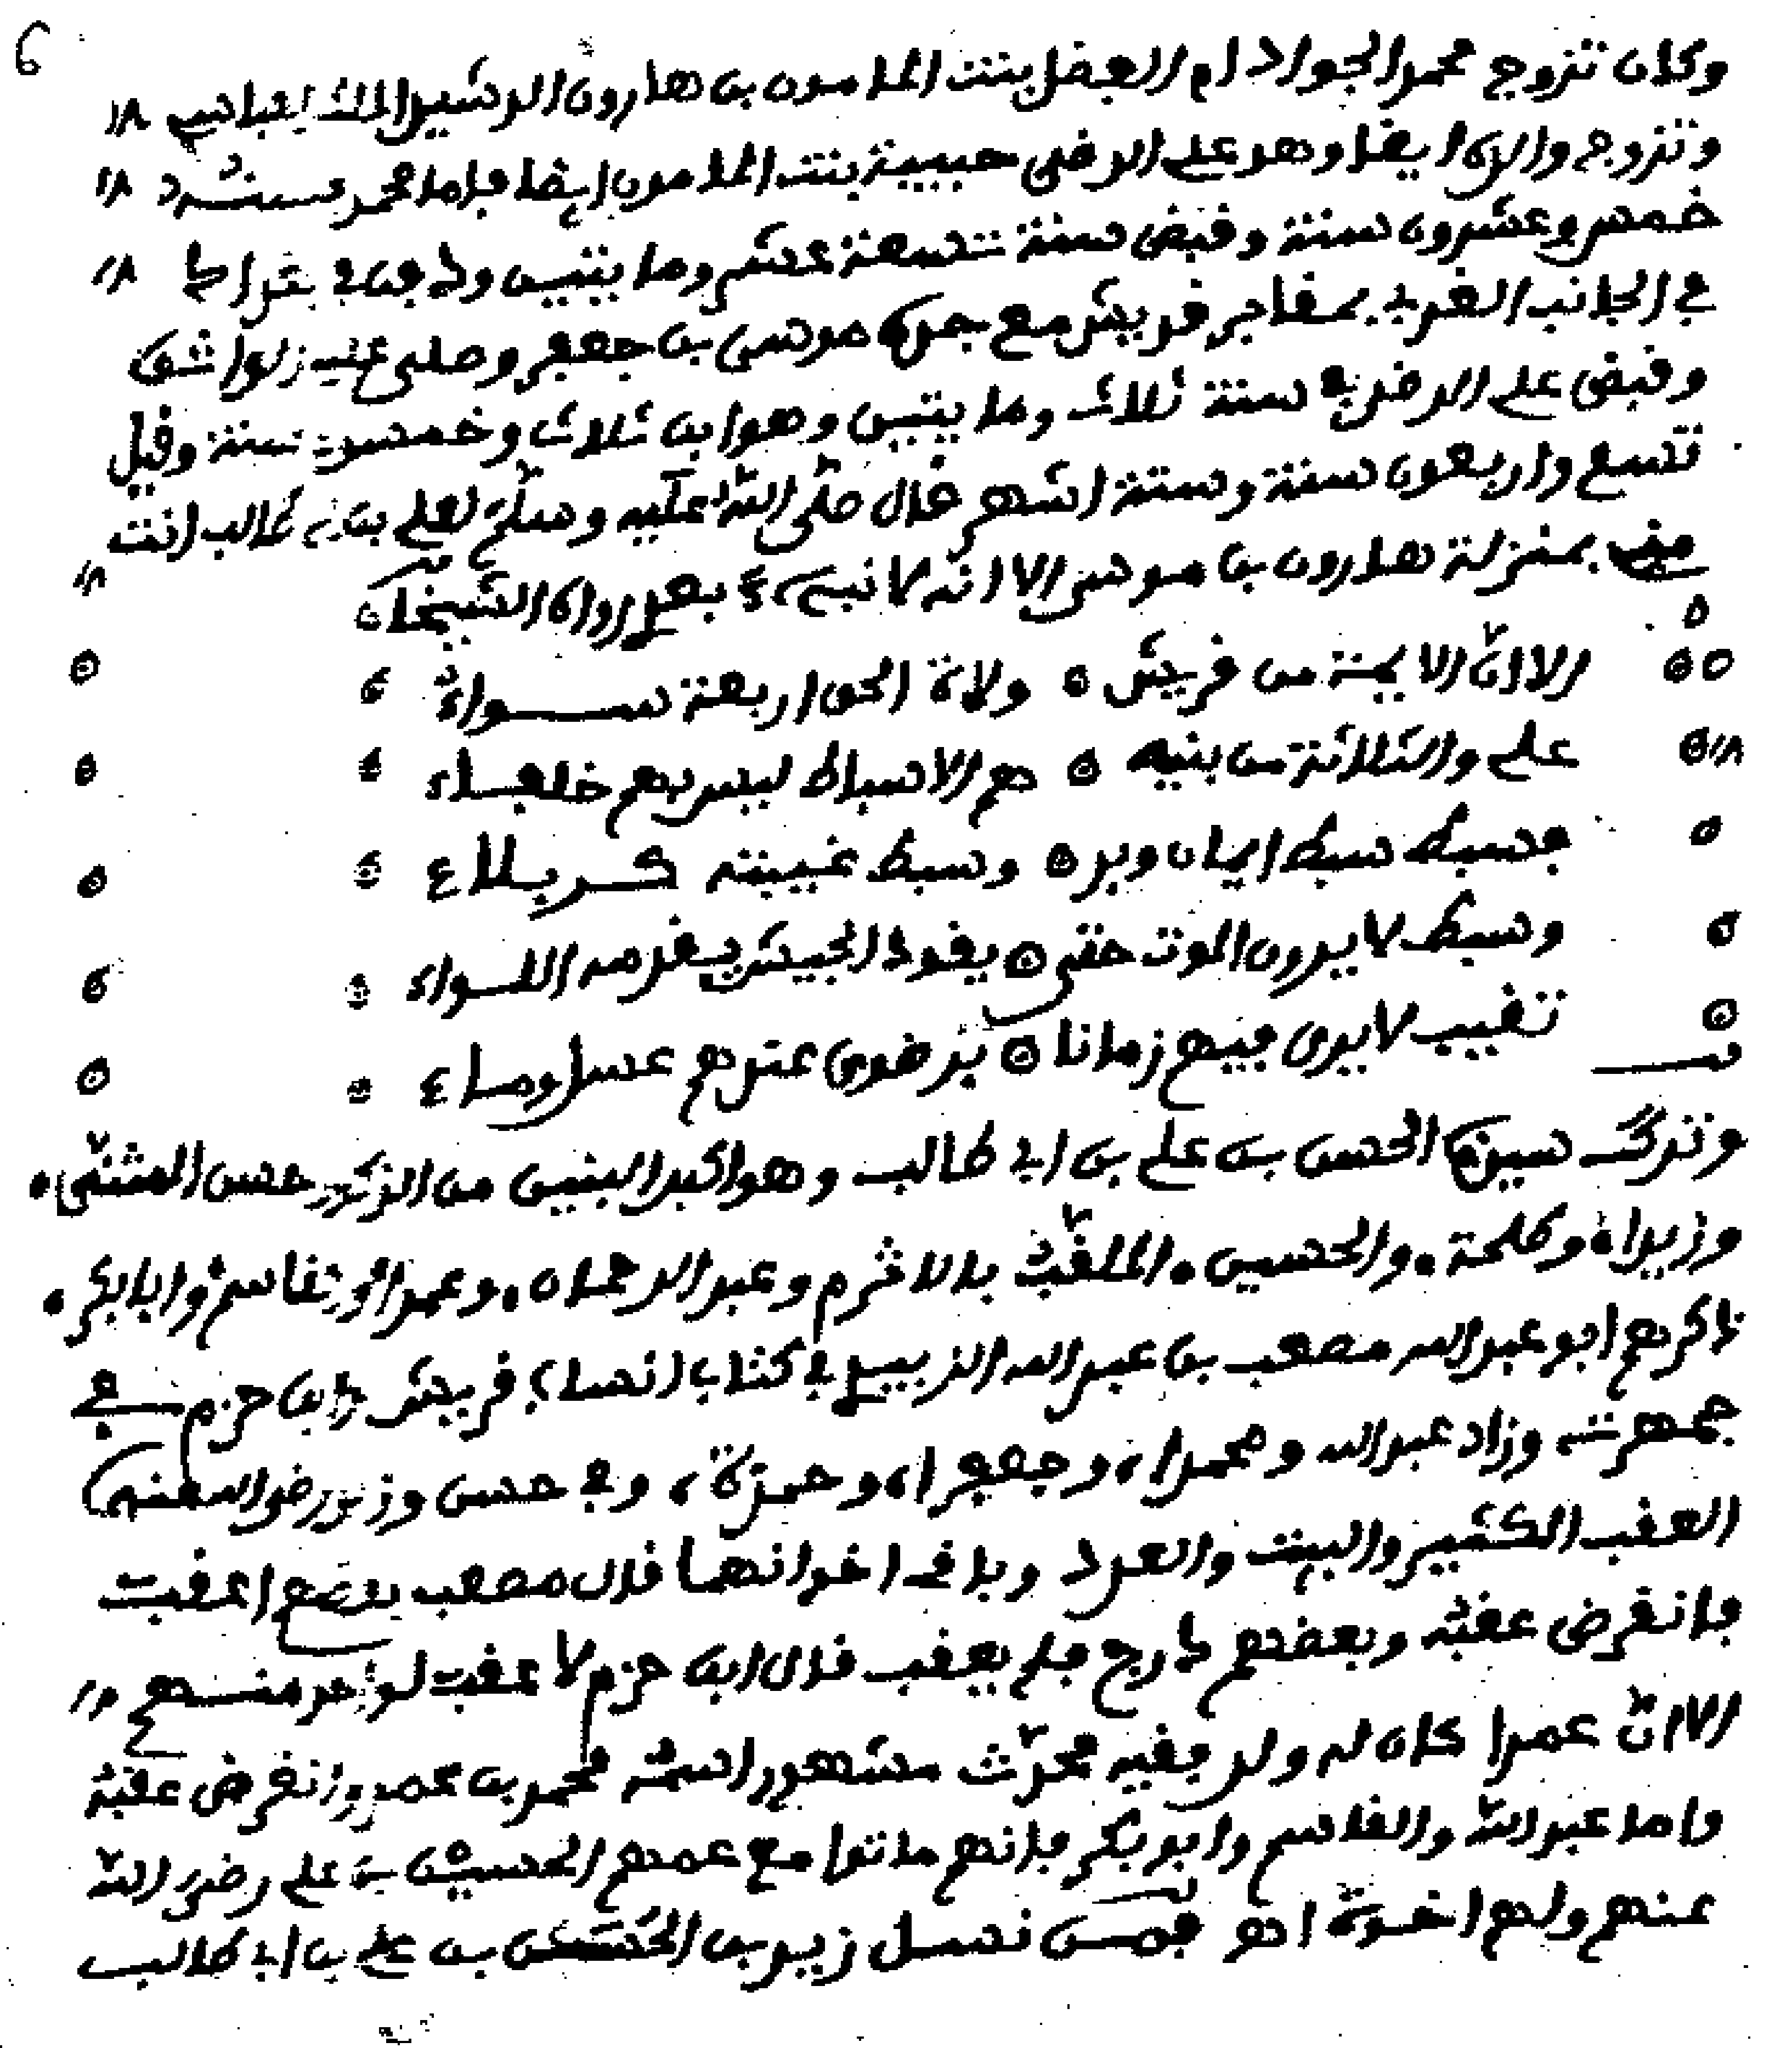 6
وكان تزوج محمد الجواد ام الفضل بنت المامون بن هارون الرشيد الملك العباسي
وتزوج والده ايضا وهو علي الرضى حبيبة بنت المامون ايضا فاما محمد
خمس وعشرون سنة وقبض سنة تسعة عشر ومايتين ودفن في بغداد
في الجانب الغربي بمقابر قريش مع جده موسى بن جعفر وصلى عليه الواثق
وقبض علي الرضى سنة ثلاث ومايتين وهو ابن ثلاث وخمسين سنة وقيل
تسع واربعون سنة وستة اشهر قال صلى الله عليه وسلم لعلي بن ابي طالب انت
مني بمنزلة هارون بن موسى الا انه لا نبيء بعدي رواه الشيخان
الا ان الايمة من قريش ولاة الحق اربعة سواء
علي والثلاثة من بنيه هم الاسباط ليس بهم خفاء
فسبط سبط ايمان وبر وسبط غيبته كربلاء
وسبط لا يرون الموت حتى يقود الجيش يقدمه اللواء
تغيب لا يرى فيهم زمانا برضوى عندهم عسل وماء
وترك سيدنا الحسن بن علي بن ابي طالب وهو اكبر البنين من الذكور حسن المثنى
وزيدا وطلحة والحسين الملقب بالاثرم وعبد الرحمان وعمرا والقاسم وابا بكر
ذكرهم ابو عبد الله مصعب بن عبد الله الزبيري في كتاب انساب قريش وابن حزم في
جمهرته وزاد عبد الله ومحمدا وجعفرا وحمزة وفي حسن وزيد رضي الله عنهما
العقب الكثير والبيت والعدد وباقي اخوانهما قال مصعب بعضهم اعقب
فانقرض عقبه وبعضهم درج فلم يعقب قال ابن حزم لا عقب لواحد منهم
الا ان عمرا كان له ولد فقيه محدث مشهور اسمه محمد بن عمرو وانقرض عقبه
واما عبد الله والقاسم وابو بكر فانهم ماتوا مع عمهم الحسين بن علي رضي الله
عنهم ولهم اخوة اهـ فمن نسل زيد بن الحسن بن علي بن ابي طالب